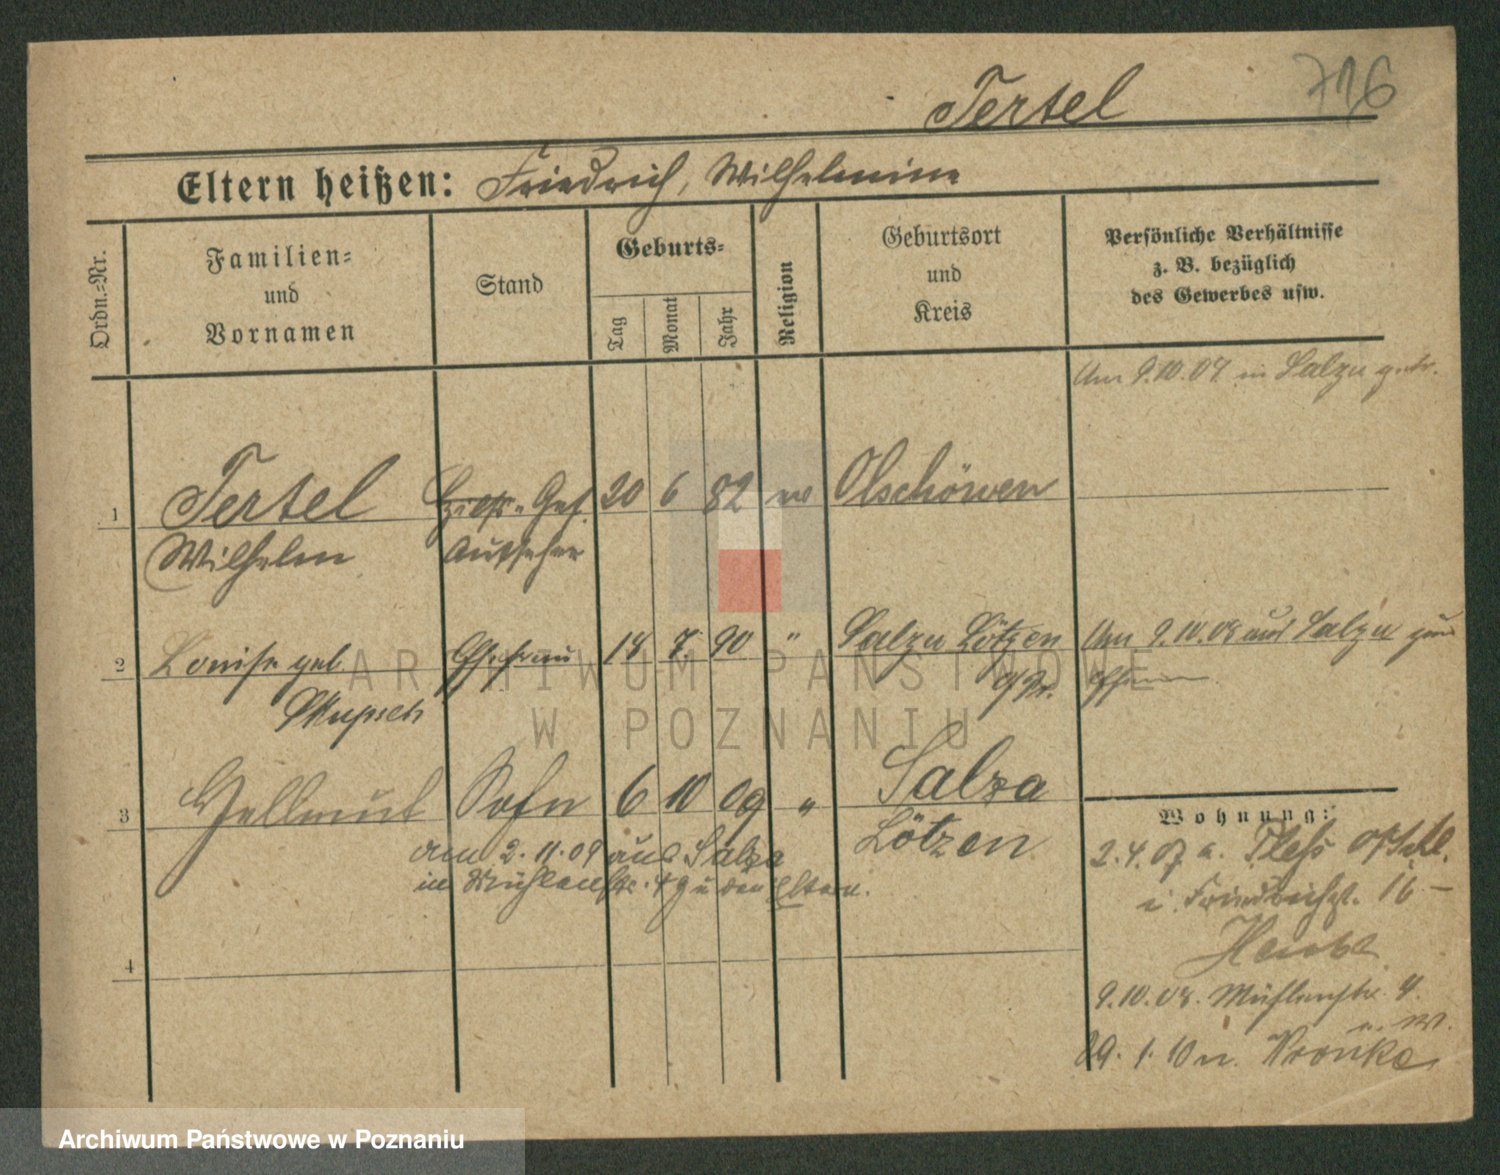 Tertel
716
Eltern heißen: Friedrich, Wilhelmine
Ordn.-Nr.
Familien-
und
Vornamen
Stand
Geburts-
Tag
Monat
Jahr
Religion
Geburtsort
und
Kreis
Persönliche Verhältnisse
z. B. bezüglich
des Gewerbes usw.
Am 9.10.08 in Salza getr.
1 Tertel Gef. 20 6 82 ev Olschöwen
Wilhelm Aufseher
2 Louise geb. Ehefrau 18 7 90 " Salza Lötzen Am 9.10.08 aus Salza zum
Skupsch O/Pr.
3 Hellmut Sohn 6 10 09 " Salza
Lötzen
am 2.11.09 aus Salza
in Mühlenstr. 4 zu den Eltern.
Wohnung:
2.4.07 a. Pless
i. Friedrichst. 16 –
9.10.08. Mühlenstr. 4.
u. W.
29.1.10 n. Wronke
4
ARCHIWUM PAŃSTWOWE
W POZNANIU
Archiwum Państwowe w Poznaniu